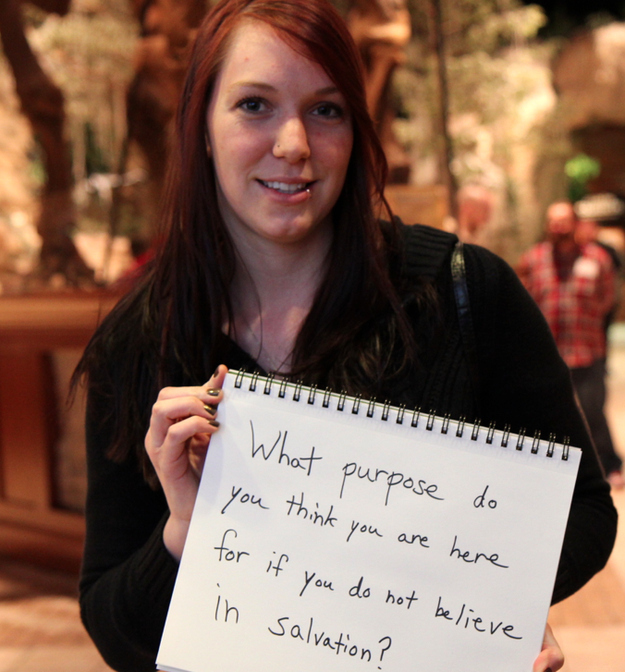 What purpose do
you think you are here
for if you do not believe
in salvation?